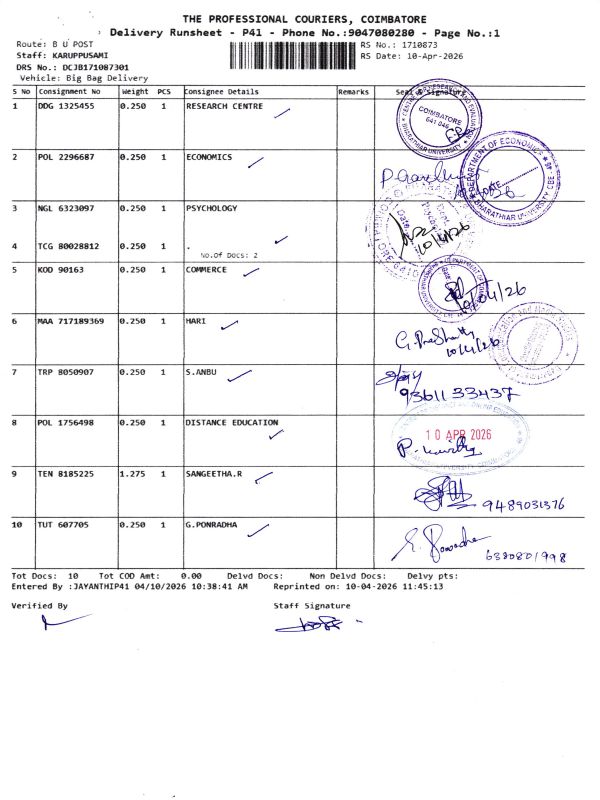 THE PROFESSIONAL COURIERS, COIMBATORE
Delivery Runsheet - P41 - Phone No.:9047080280 - Page No.:1
Route: B U POST
RS No.: 1710873
Staff: KARUPPUSAMI
RS Date: 10-Apr-2026
DRS No.: DCJB171087301
Vehicle: Big Bag Delivery
S No Consignment No Weight PCS Consignee Details Remarks Seal & Signature
1 DDG 1325455 0.250 1 RESEARCH CENTRE
COIMBATORE
641 046
BHARATHIAR UNIVERSITY
2 POL 2296687 0.250 1 ECONOMICS
DEPARTMENT OF ECONOMICS
DATE
BHARATHIAR UNIVERSITY, CBE
3 NGL 6323097 0.250 1 PSYCHOLOGY
10/4/26
4 TCG 80028812 0.250 1 .
No.Of Docs: 2
5 KOD 90163 0.250 1 COMMERCE
10/04/26
6 MAA 717189369 0.250 1 HARI
10/4/26
7 TRP 8050907 0.250 1 S.ANBU
9361133437
8 POL 1756498 0.250 1 DISTANCE EDUCATION
10 APR 2026
9 TEN 8185225 1.275 1 SANGEETHA.R
9489031376
10 TUT 607705 0.250 1 G.PONRADHA
6380801998
Tot Docs: 10 Tot COD Amt: 0.00 Delvd Docs: Non Delvd Docs: Delvy pts:
Entered By :JAYANTHIP41 04/10/2026 10:38:41 AM Reprinted on: 10-04-2026 11:45:13
Verified By
Staff Signature